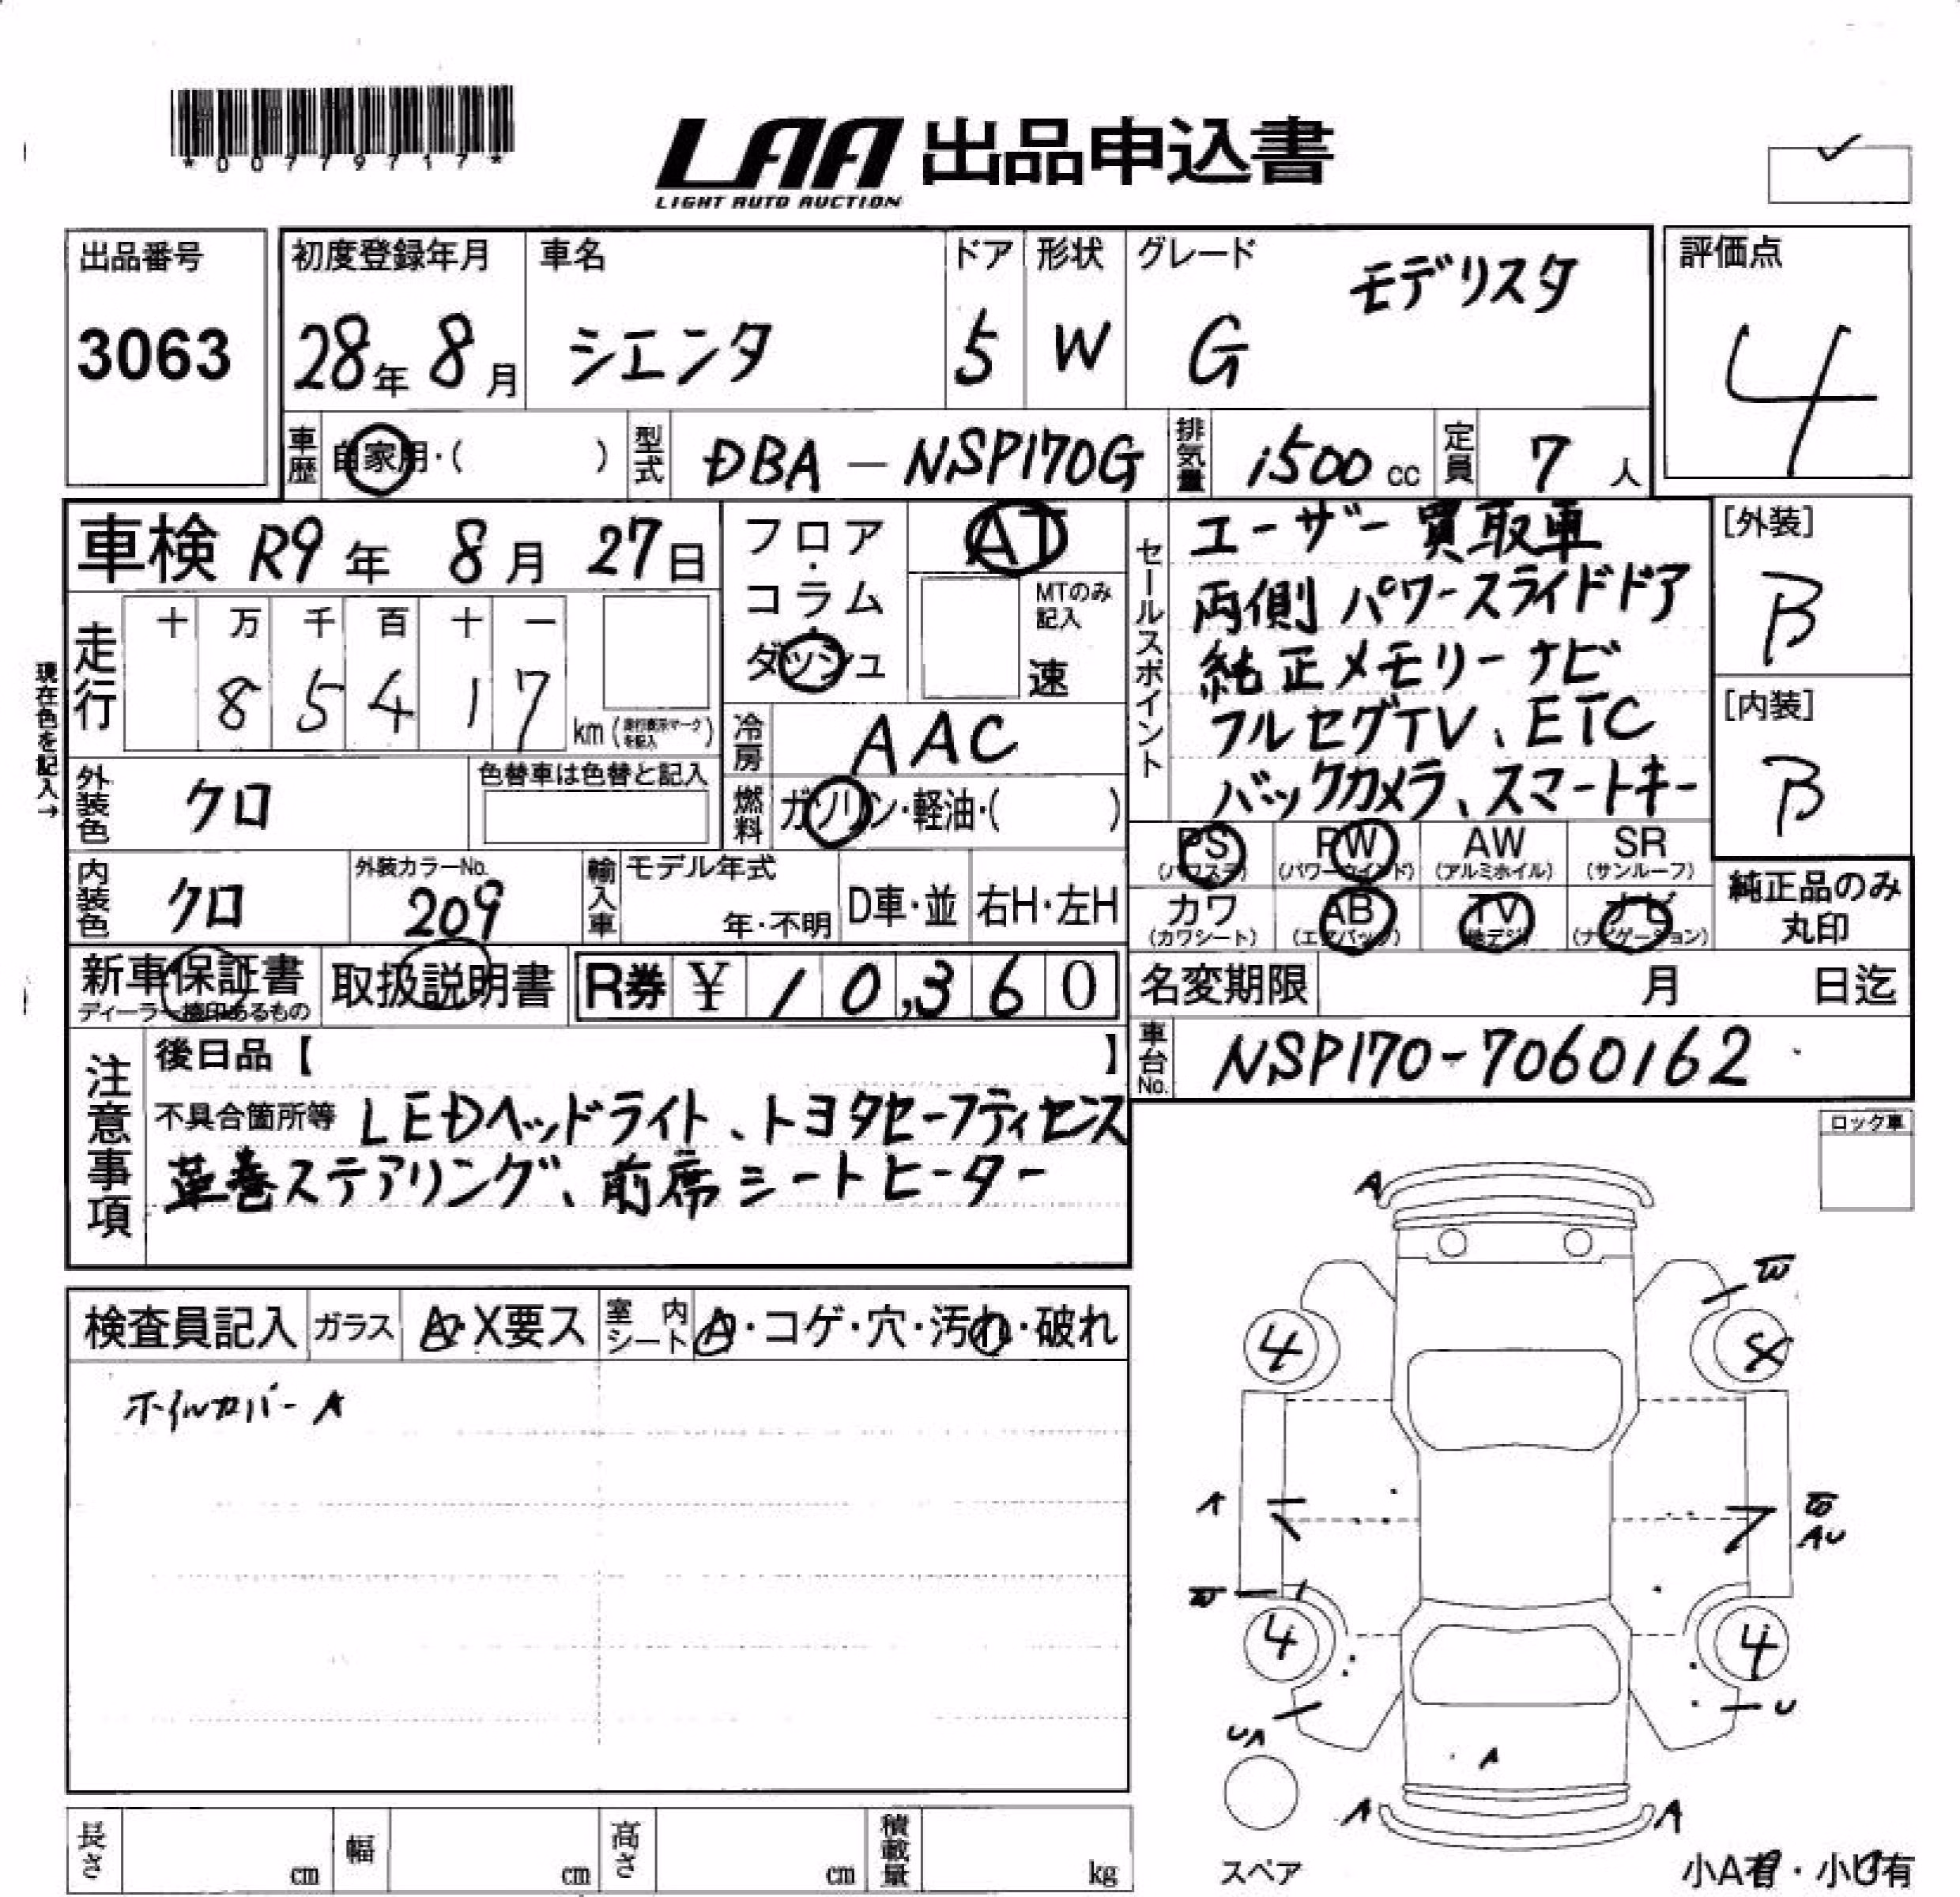 *00779717*
LAA 出品申込書
LIGHT AUTO AUCTION
出品番号
3063
初度登録年月
28年 8月
車名
シエンタ
ドア
5
形状
W
グレード
モデリスタ
G
評価点
4
車歴 自家用・( )
型式 DBA-NSP170G
排気量 1500 cc
定員 7 人
車検 R9年 8月 27日
フロア・コラム・ダッシュ
AT
MTのみ記入
速
走行
十 万 千 百 十 一
8 5 4 1 7
km (走行表示マークを記入)
現在色を記入→
冷房 AAC
外装色 クロ
色替車は色替と記入
燃料 ガソリン・軽油・( )
内装色 クロ
外装カラーNo.
209
輸入車
モデル年式
年・不明
D車・並
右H・左H
セールスポイント
ユーザー買取車
両側パワースライドドア
純正メモリーナビ
フルセグTV、ETC
バックカメラ、スマートキー
[外装]
B
[内装]
B
PS (パワステ)
PW (パワーウインド)
AW (アルミホイル)
SR (サンルーフ)
カワ (カワシート)
AB (エアバック)
TV (地デジ)
ナビ (ナビゲーション)
純正品のみ丸印
新車保証書
ディーラー捺印あるもの
取扱説明書
R券 ¥ 10,360
名変期限 月 日迄
車台No. NSP170-7060162
注意事項
後日品【 】
不具合箇所等 LEDヘッドライト、トヨタセーフティセンス
革巻ステアリング、前席シートヒーター
ロック車
検査員記入
ガラス A・X要ス
室内シート A・コゲ・穴・汚れ・破れ
ホイルカバーA
A
W
4
A
AU
W
4
4
UA
U
A
A
A
スペア
小A有・小U有
長さ cm
幅 cm
高さ cm
積載量 kg